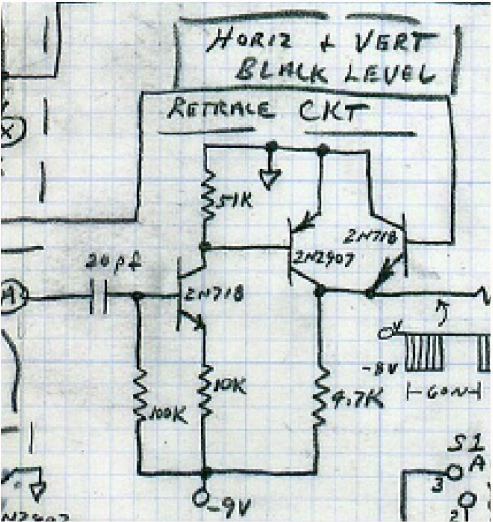 HORIZ + VERT
BLACK LEVEL
RETRACE CKT
X
51K
2N718
2N2907
20pf
A
2N718
0V
-8V
60N
10K
100K
4.7K
-9V
S1
A
3
2
2N2907